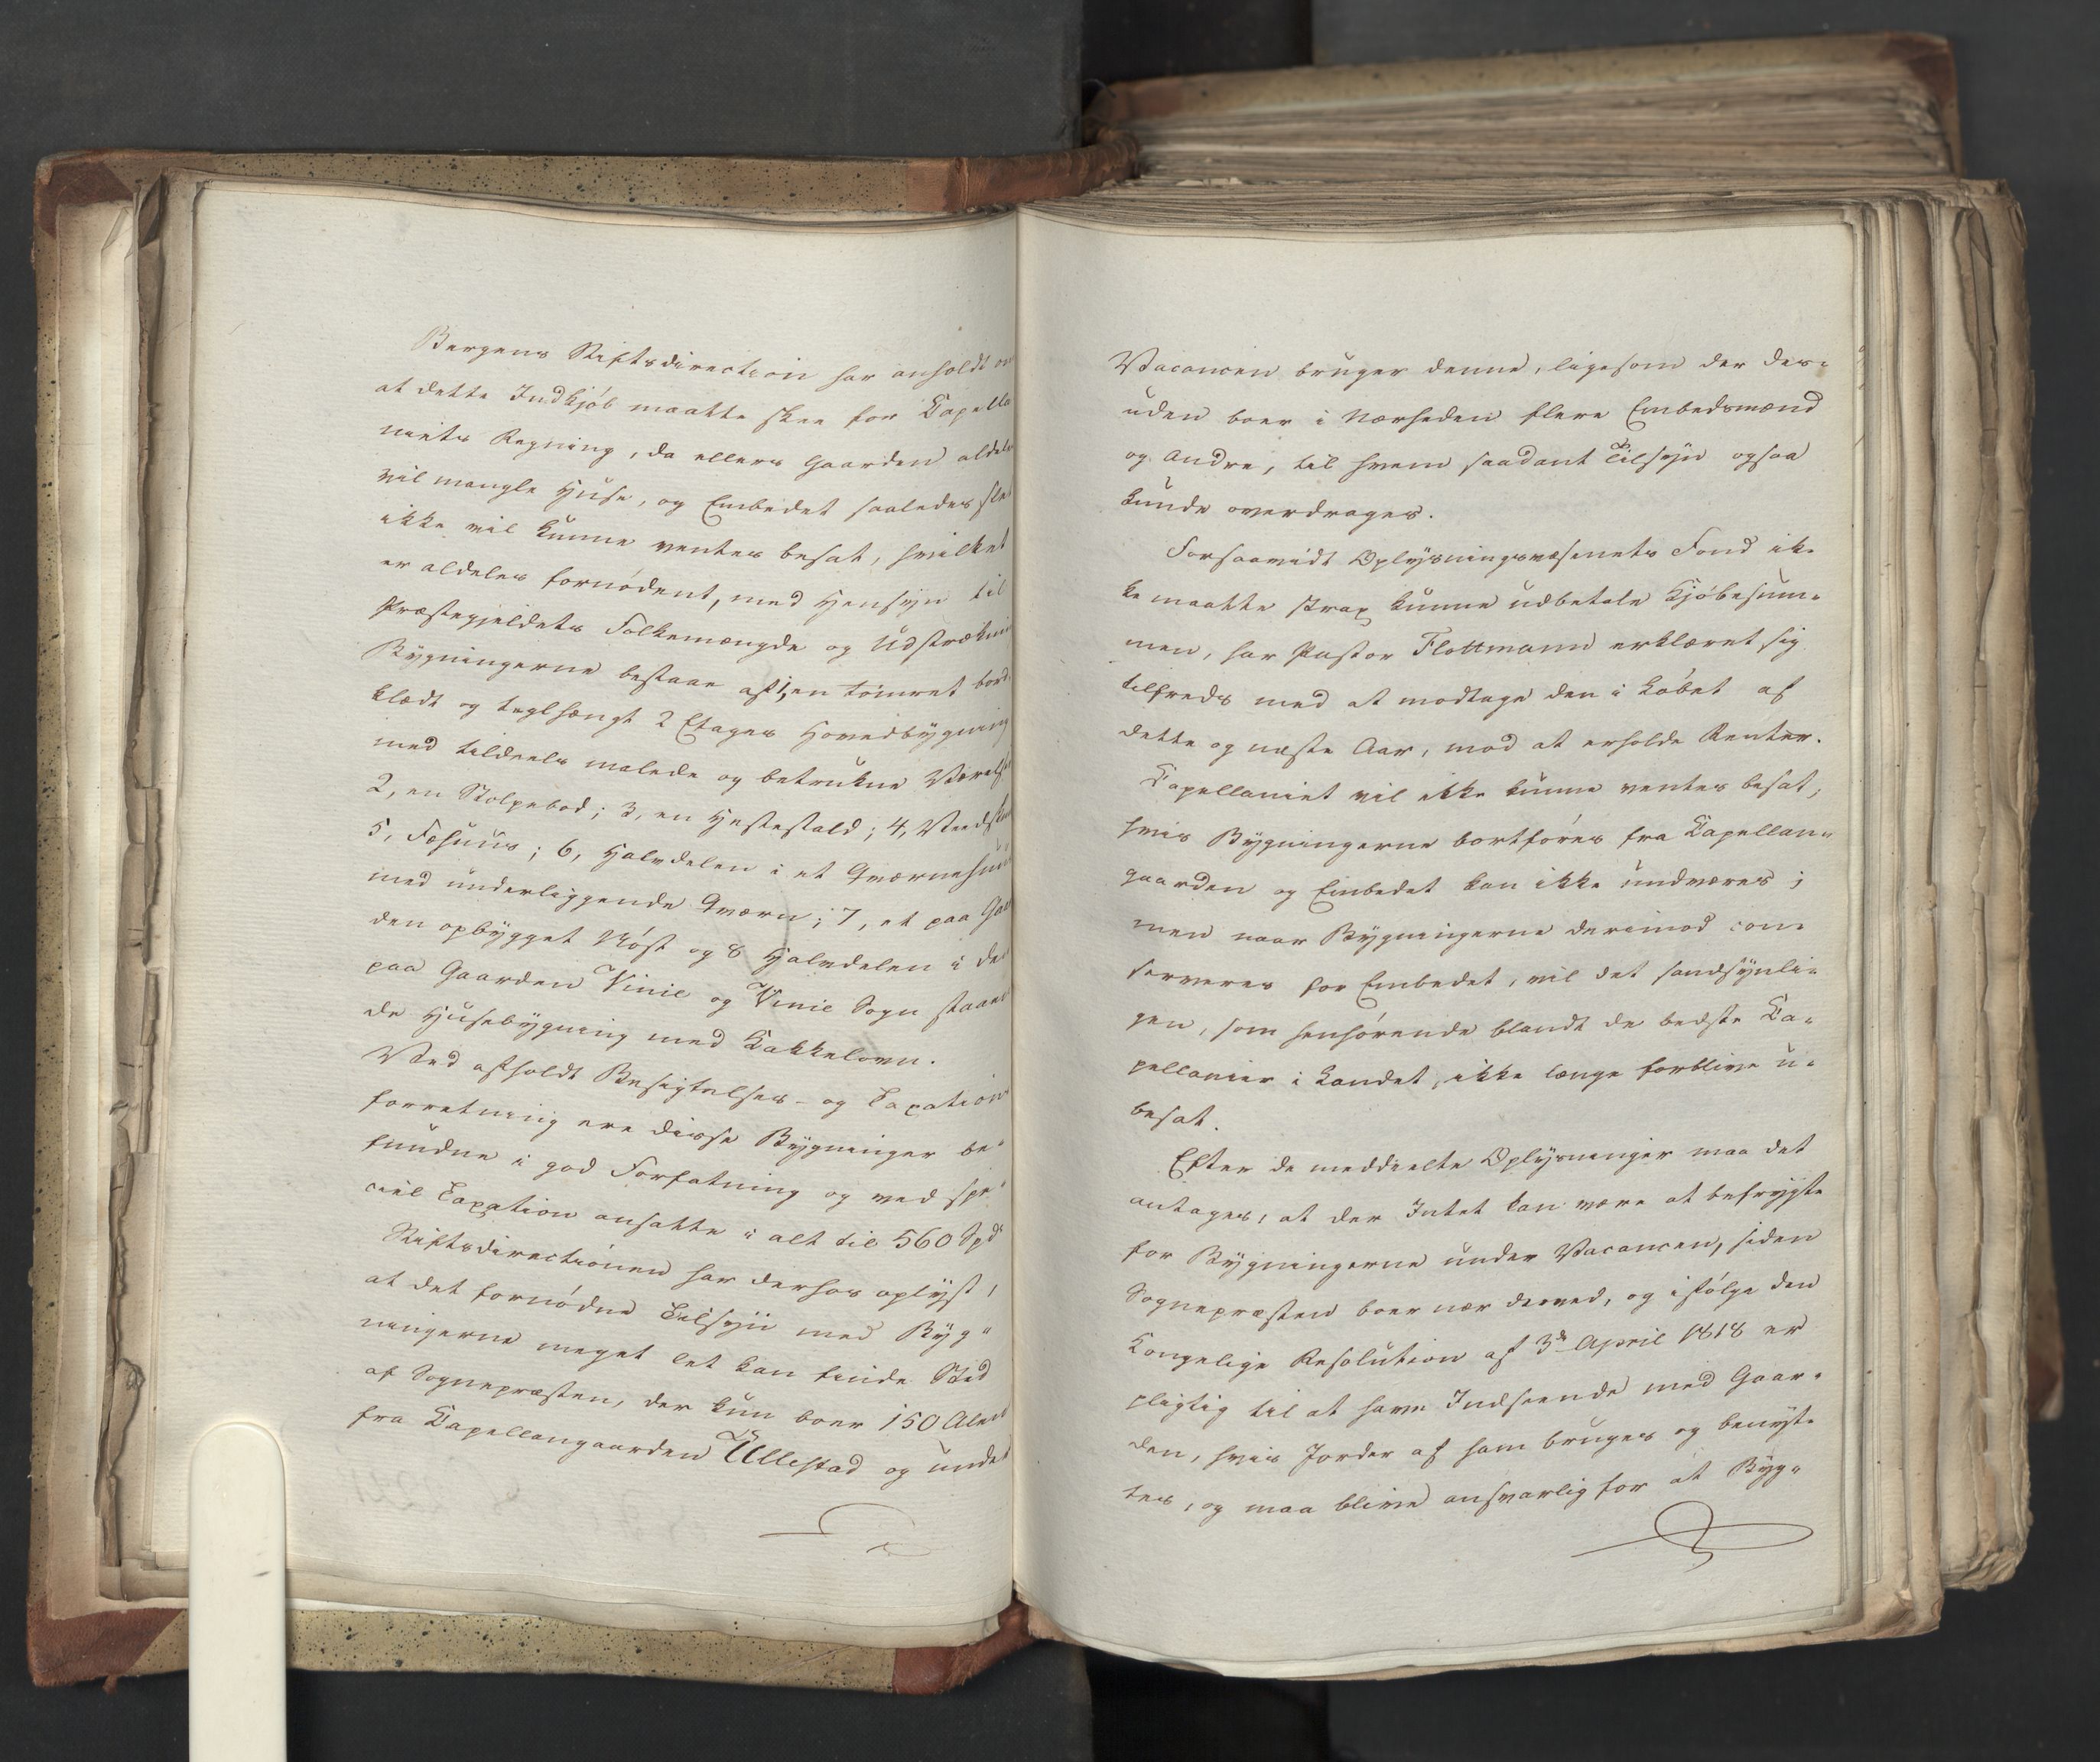 Bergens Stiftsdirection har anholdt om
at dette Indkjöb maatte skee for Capella
niets Regning, da ellers Gaarden aldeles
vil mangle Huse, og Embedet saaledes slet
ikke vil kunne ventes besat, hvilket
er aldeles fornödent, med Hensyn til
Præstegjeldets Folkemængde og Udstrækning
Bygningerne bestaae af 1, en tömret bord-
klædt og teglhængt 2 Etages Hovedbygning
med tildeels malede og betrukne Værelser
2, en Stolpebod; 3, en Hestestald; 4, Vedskuur
5, Fæhuus; 6, Halvdelen i et Qværnehuus
med underliggende Qværn; 7, et paa Gaar
den opbygget Nöst og 8 Halvdelen i den
paa Gaarden Vinie og Vinie Sogn staaen
de Husebygning med Kakkelovn.
Ved afholdt Besigtelses- og Taxations
forretning ere disse Bygninger be-
fundne i god Forfatning og ved spe-
ciel Taxation ansatte i alt til 560 Spd
Stiftsdirectionen har derhos oplyst,
at det fornödne Tilsyn med Byg-
ningerne meget let kan finde Sted
af Sognepræsten, der kun boer 150 Alen
fra Capellangaarden Üllestad og under
Vacancen bruger denne, ligesom der des-
uden boer i Nærheden flere Embedsmænd
og Andre, til hvem saadant Tilsyn ogsaa
kunde overdrages.
Forsaavidt Oplysningsvæsenets Fond ik-
ke maatte strax kunne udbetale Kjöbesum-
men, har Pastor Flottmann erklæret sig
tilfreds med at modtage den i Löbet af
dette og næste Aar, mod at erholde Renter.
Capellaniet vil ikke kunne ventes besat,
hvis Bygningerne bortföres fra Capellan-
gaarden og Embedet kan ikke undværes;
men naar Bygningerne derimod con-
serveres for Embedet, vil det sandsynli-
gen, som henhörende blandt de bedste Ca-
pellanier i Landet, ikke længe forblive u-
besat.
Efter de meddeelte Oplysninger maa det
antages, at der Intet kan være at befrygte
for Bygningerne under Vacancen, siden
Sognepræsten boer nær derved, og ifölge den
Kongelige Resolution af 3de April 1818 er
pligtig til at have Indseende med Gaar-
den, hvis Jorder af ham bruges og benyt-
tes, og maa blive ansvarlig for at Byg-